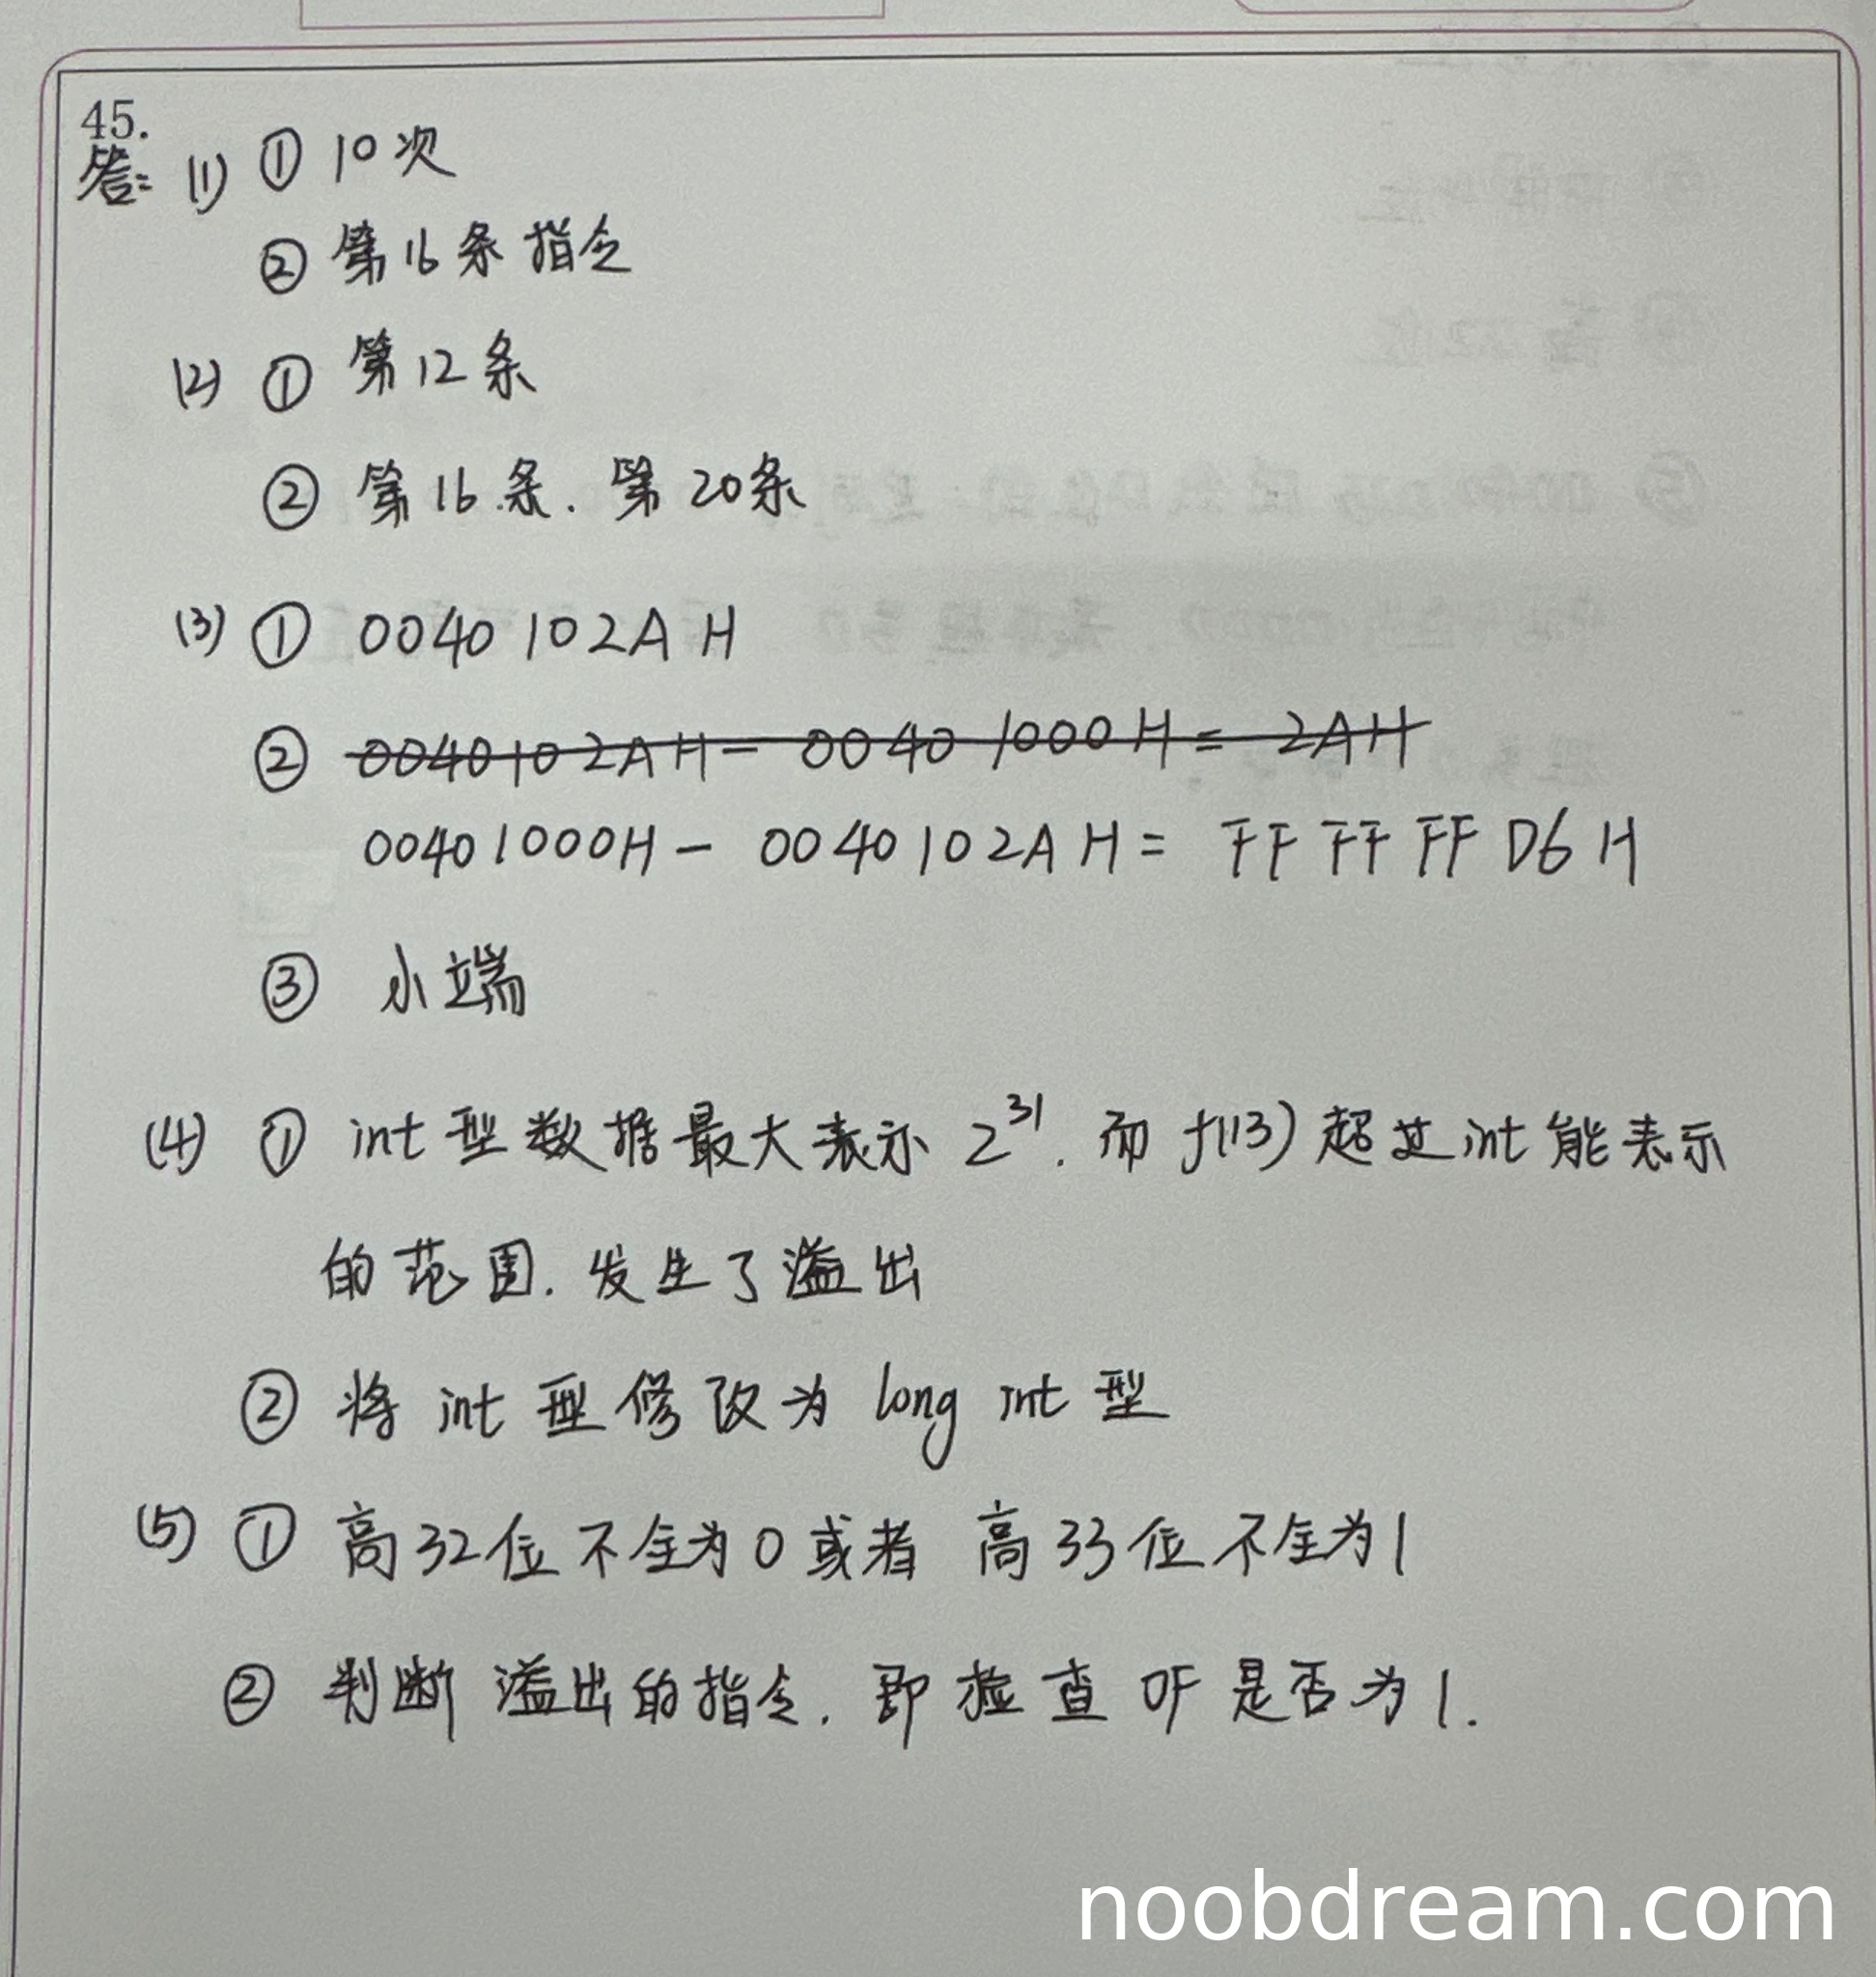 45.
答: (1) ① 10次
② 第16条指令
(2) ① 第12条
② 第16条. 第20条
(3) ① 0040 102A H
② 0040102AH - 0040 1000H = 2AH
00401000H - 0040102AH = FF FF FF D6 H
③ 小端
(4) ① int型数据最大表示 2^31. 而 f(13) 超过int能表示
的范围. 发生了溢出
② 将 int 型修改为 long int 型
(5) ① 高32位不全为0或者 高33位不全为1
② 判断 溢出的指令. 即检查 OF 是否为1.
noobdream.com